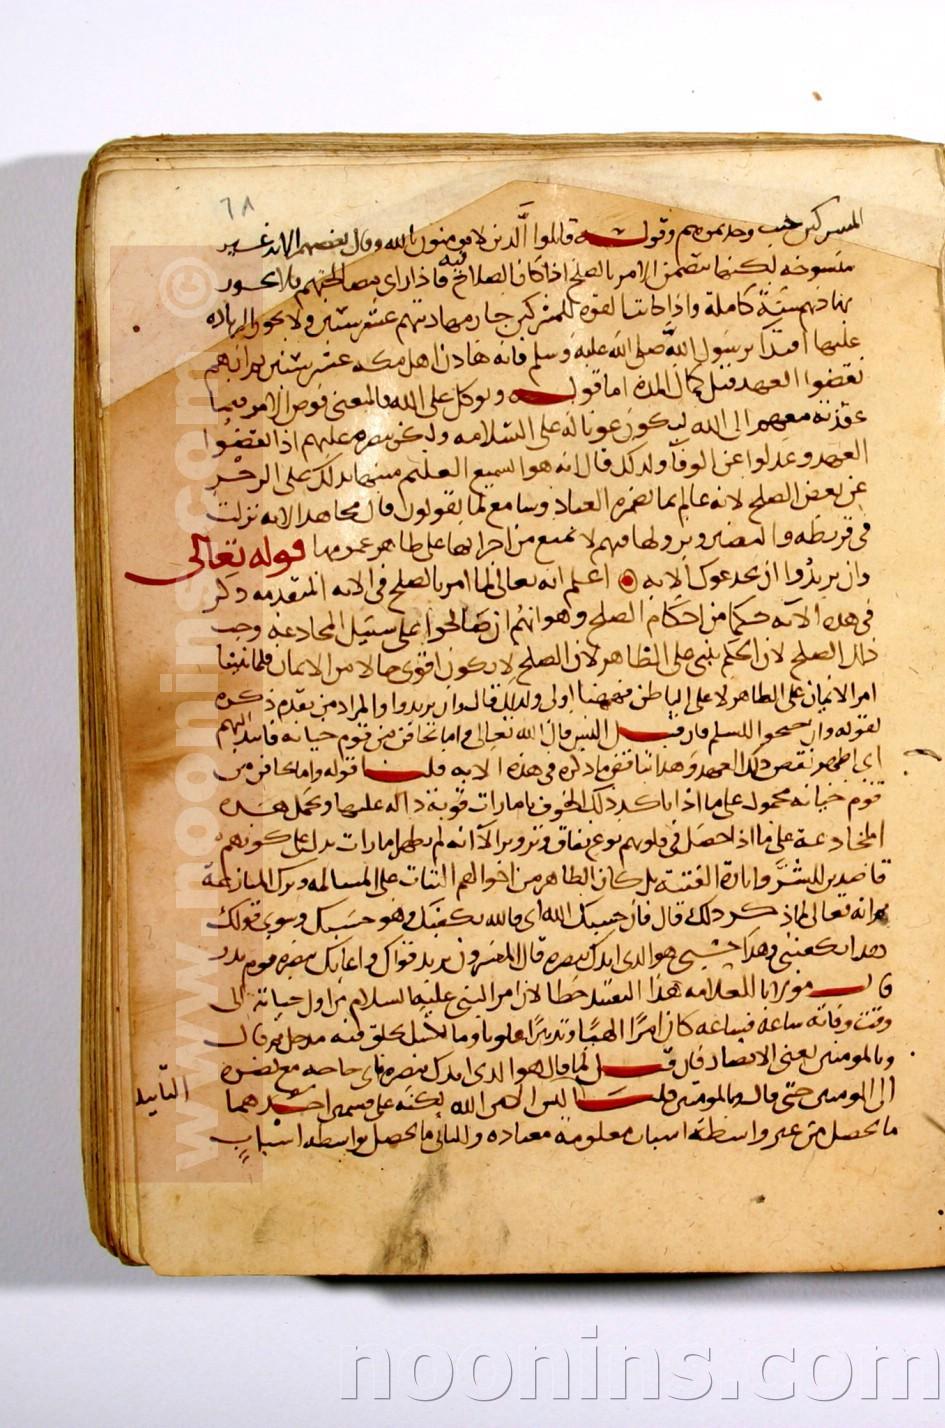 ٦٨
المشركين حيث وجدتموهم وقوله قاتلوا الذين لا يومنون بالله وقال بعضهم الاية غير
منسوخة لكنها تتضمن الامر بالصلح اذا كان الصلاح فيه فاذا راى مصالحتهم فلا يجوز
يهادنهم سنة كاملة واذا كانت القوة للمشركين جاز مهادنتهم عشر سنين ولا يجوز الزيادة
عليها اقتداء برسول الله صلى الله عليه وسلم فانه هادن اهل مكة عشر سنين ثم انهم
نقضوا العهد قبل كمال المدة اما قوله وتوكل على الله فالمعنى فوض الامر فيما
عقدته معهم الى الله ليكون عونا لك على السلامة ولكن ينصرك عليهم اذا نقضوا
العهد وعدلوا عن الوفا ولذلك قال انه هو السميع العليم منبها بذلك على الزجر
عن نقض الصلح لانه عالم بما يضمره العباد وسامع لما يقولون قال مجاهد الاية نزلت
في قريظة والنضير ونزولها فيهم لا تمنع من اجرائها على ظاهر عمومها قوله تعالى
وان يريدوا ان يخدعوك الاية اعلم انه تعالى لما امر بالصلح في الاية المتقدمة ذكر
في هذه الاية حكما من احكام الصلح وهو انهم ان صالحوا على سبيل المخادعة وجب
ذلك الصلح لان الحكم يبنى على الظاهر لان الصلح لا يكون اقوى حالا من الايمان فلما بنينا
امر الايمان على الظاهر لا على الباطن فههنا اولى ولذلك قال وان يريدوا والمراد من تقدم ذكره
لقوله وان جنحوا للسلم فان قيل اليس قال الله تعالى واما تخافن من قوم خيانة فانبذ اليهم
اي اظهر نقض ذلك العهد وهذا يناقض ما ذكره في هذه الاية قلنا قوله واما تخافن من
قوم خيانة محمول على ما اذا تاكد ذلك الخوف بامارات قوية دالة عليها وتحمل هذه
المخادعة على ما اذا حصل في قلوبهم نوع نفاق وتزوير الا انه لم يظهر امارات تدل على كونهم
قاصدين للشر واثارة الفتنة بل كان الظاهر من احوالهم الثبات على المسالمة وترك المنازعة
ثم انه تعالى لما ذكر ذلك قال فان حسبك الله اي فالله يكفيك وهو حسبك وسوى قولك
هذا يكفيني وهذا حسبي هو الذي ايدك بنصره قال المفسرون يريد قواك واعانك بنصره يوم بدر
قال مولانا العلامة هذا التقييد خطا لان امر النبي عليه السلام من اول حياته الى
وقت وفاته ساعة فساعة كان امرا الهيا وتدبيرا علويا وما كان لكسب الخلق فيه مدخل ثم قال
وبالمومنين يعني الانصار فان قيل لما قال هو الذي ايدك بنصره فاي حاجة مع نصره
الى المومنين حتى قال وبالمومنين قلنا التاييد ليس الا من الله لكنه على قسمين احدهما
ما يحصل من غير واسطة اسباب معلومة معتادة والثاني ما يحصل بواسطة اسباب
التاييد
www.noonins.com©
noonins.com